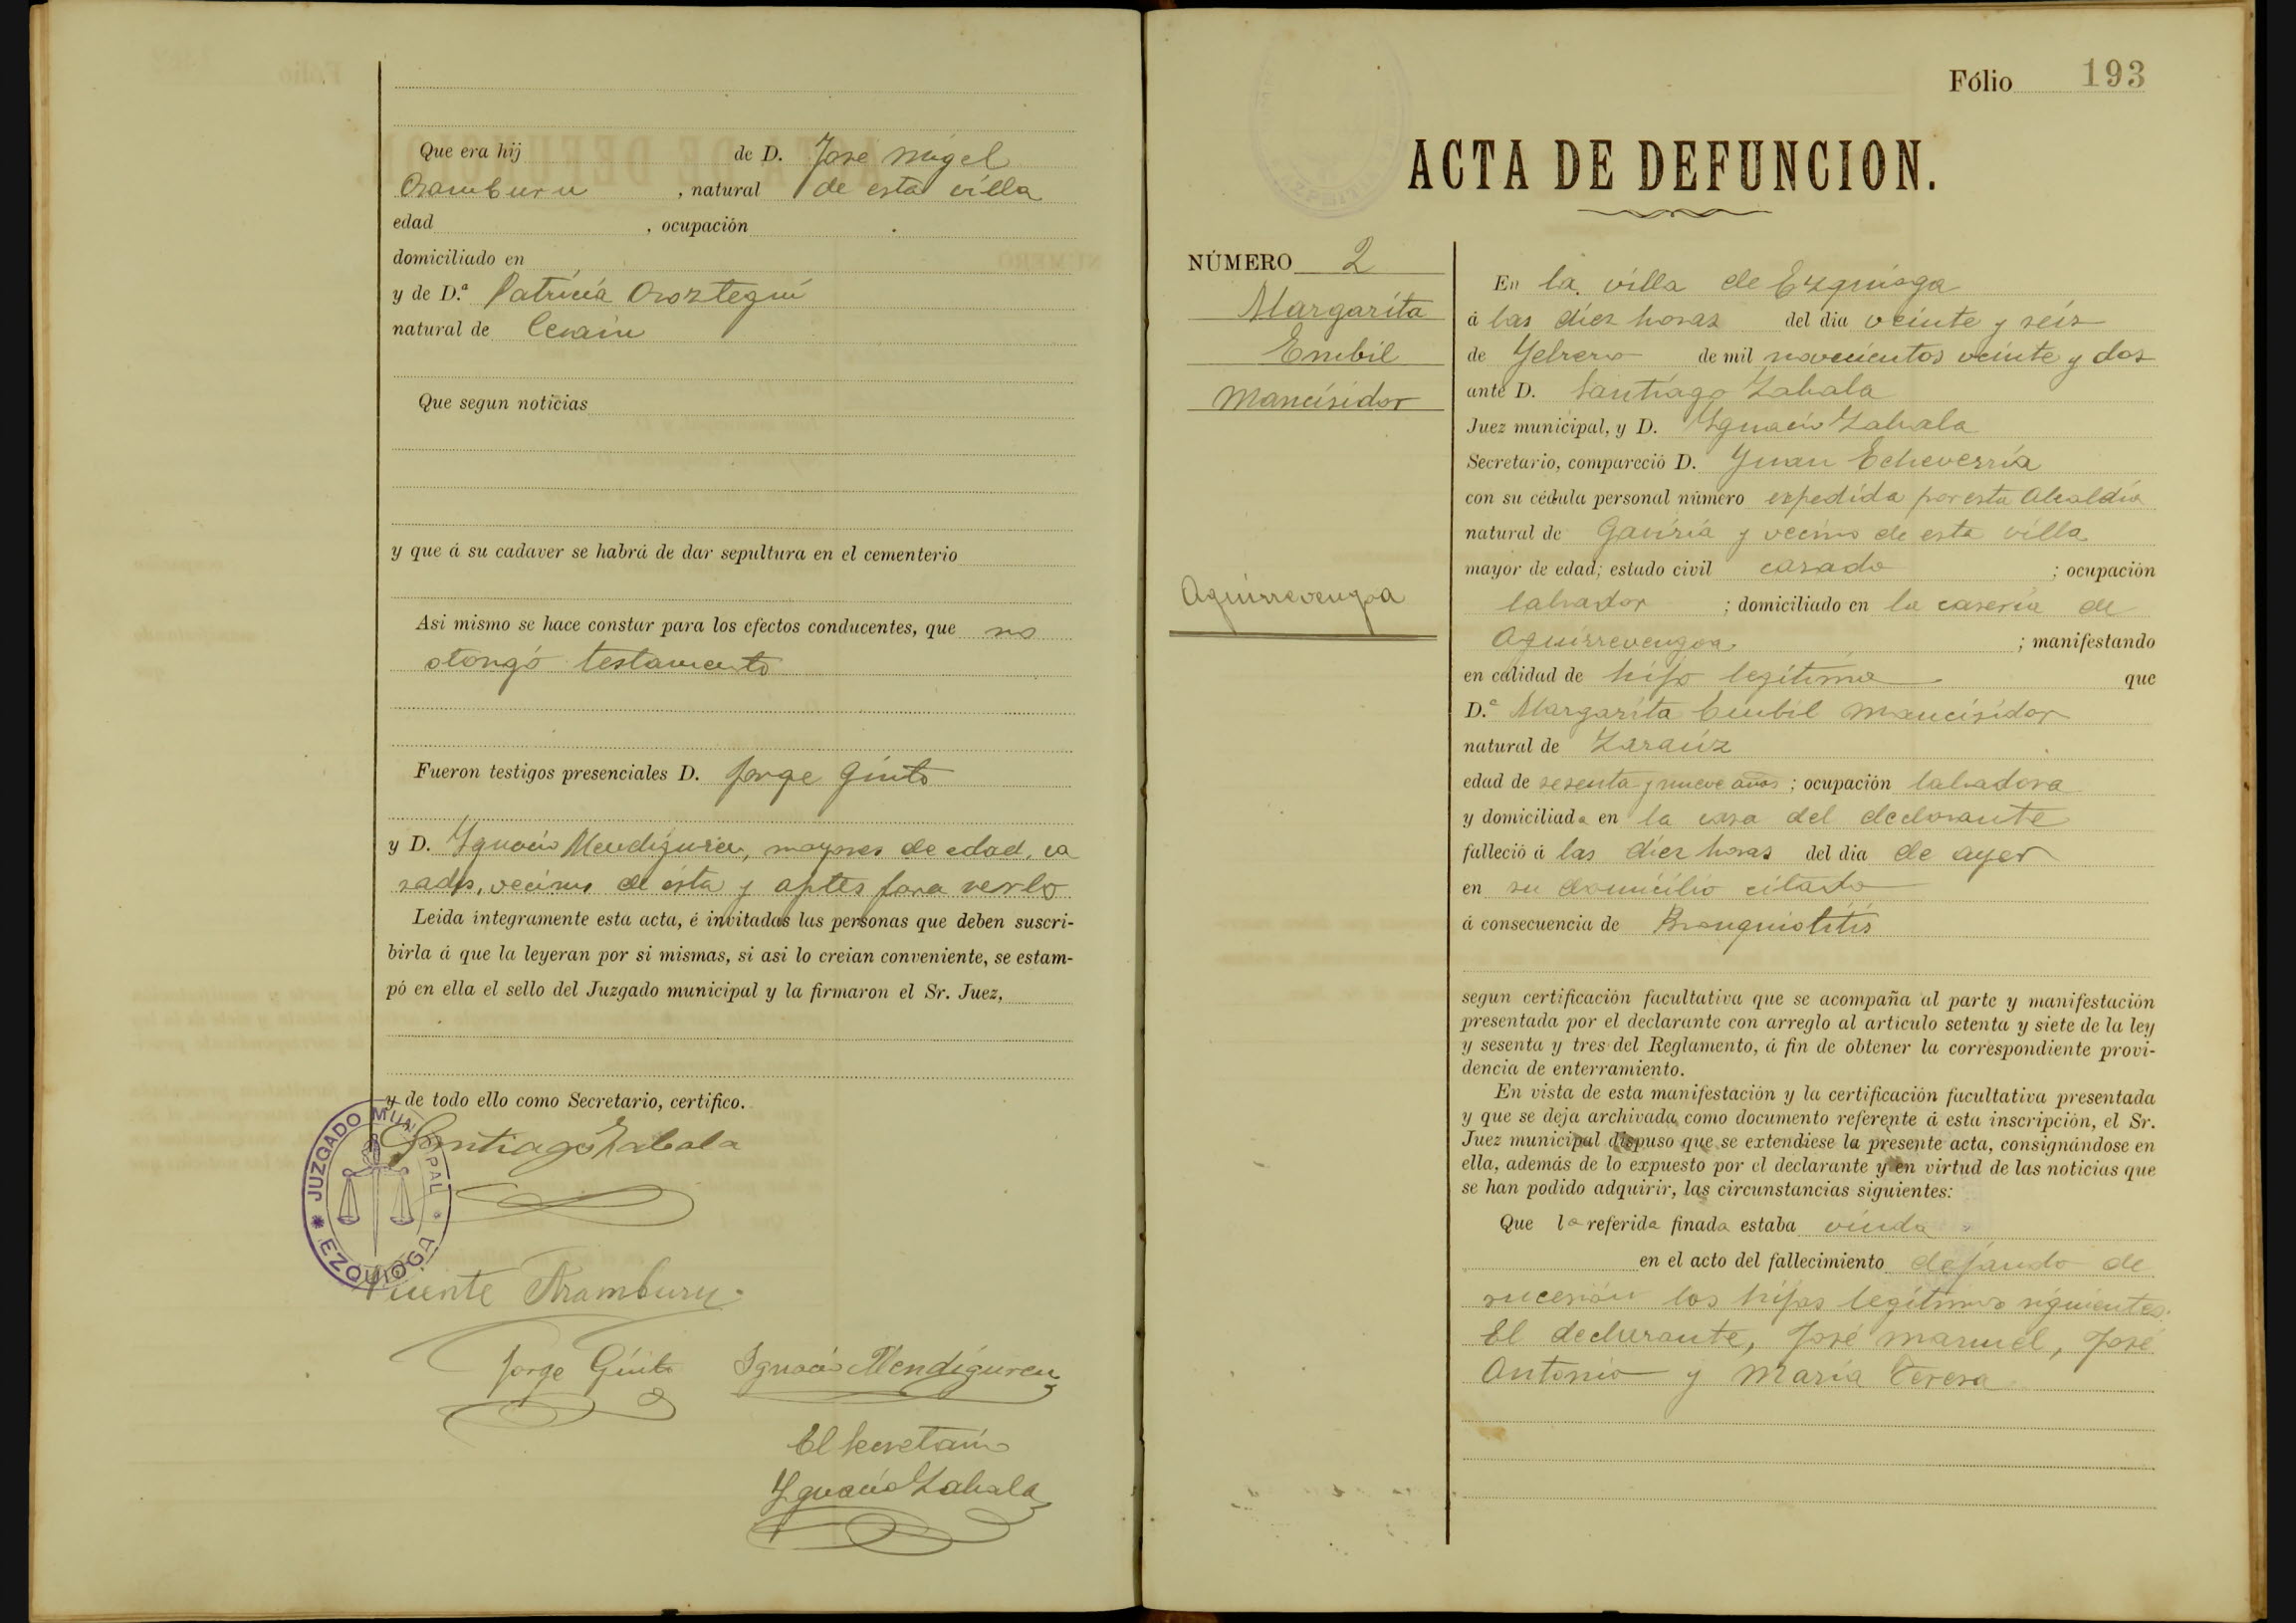 Que era hij de D. Jose Migel
Oramburu, natural de esta villa
edad , ocupación
domiciliado en
y de D.ª Patricia Oroztegui
natural de Cerain
Que segun noticias
y que á su cadaver se habrá de dar sepultura en el cementerio
Asi mismo se hace constar para los efectos conducentes, que no
otorgó testamento
Fueron testigos presenciales D. Jorge Guito
y D. Ygnacio Mendiguren, mayores de edad, ca
sados, vecinos de ésta y aptos para verlo
Leida integramente esta acta, é invitadas las personas que deben suscri-
birla á que la leyeran por si mismas, si asi lo creian conveniente, se estam-
pó en ella el sello del Juzgado municipal y la firmaron el Sr. Juez,
y de todo ello como Secretario, certifico.
Santiago Zabala
JUZGADO MUNICIPAL
EZQUIOGA
Vicente Aramburu.
Jorge Guito Ignacio Mendiguren
El Secretario
Ygnacio Zabala
Fólio 193
ACTA DE DEFUNCION.
NÚMERO 2
Margarita
Embil
Mancisidor
Aguirrevengoa
En la villa de Ezquioga
á las diez horas del dia veinte y seis
de Febrero de mil novecientos veinte y dos
ante D. Santiago Zabala
Juez municipal, y D. Ygnacio Zabala
Secretario, compareció D. Juan Echeverría
con su cédula personal número expedida por esta Alcaldía
natural de Gaviria y vecino de esta villa
mayor de edad; estado civil casado ; ocupación
labrador ; domiciliado en la caseria de
Aguirrevengoa ; manifestando
en calidad de hijo legitimo que
D.ª Margarita Embil Mancisidor
natural de Zarauz
edad de sesenta y nueve años ; ocupación labradora
y domiciliada en la casa del declarante
falleció á las diez horas del dia de ayer
en su domicilio citado
á consecuencia de Bronquiolitis
segun certificación facultativa que se acompaña al parte y manifestación
presentada por el declarante con arreglo al articulo setenta y siete de la ley
y sesenta y tres del Reglamento, á fin de obtener la correspondiente provi-
dencia de enterramiento.
En vista de esta manifestación y la certificación facultativa presentada
y que se deja archivada como documento referente á esta inscripción, el Sr.
Juez municipal dispuso que se extendiese la presente acta, consignándose en
ella, además de lo expuesto por el declarante y en virtud de las noticias que
se han podido adquirir, las circunstancias siguientes:
Que la referida finada estaba viuda
en el acto del fallecimiento dejando de
sucesión los hijos legitimos siguientes:
El declarante, José Manuel, José
Antonio y María Teresa